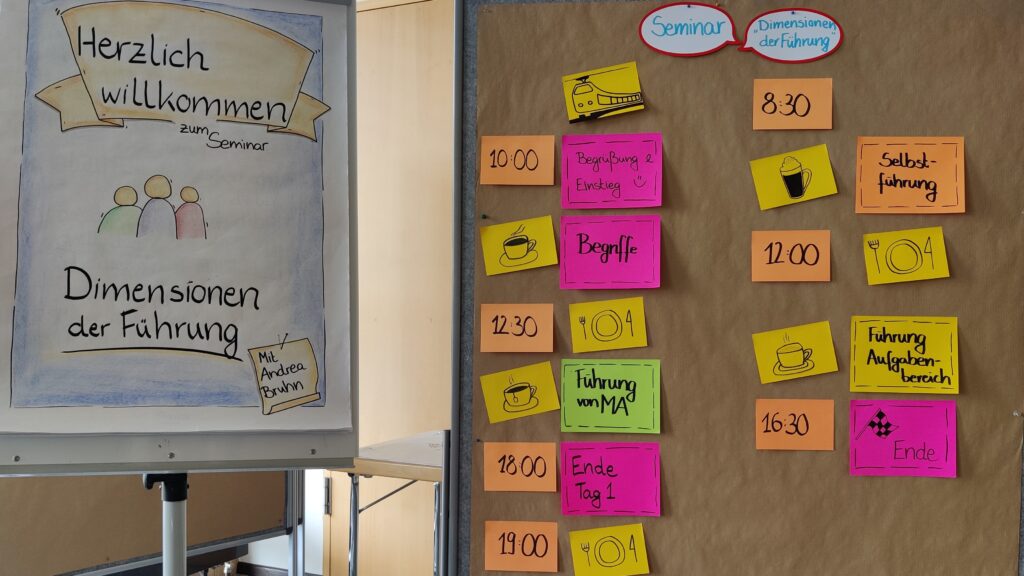 Herzlich
willkommen
zum
Seminar
Dimensionen
der Führung
Mit
Andrea
Bruhn
Seminar
"Dimensionen
der Führung"
10:00
Begrüßung &
Einstieg
Begriffe
12:30
Führung
von MA
18:00
Ende
Tag 1
19:00
8:30
Selbst-
führung
12:00
Führung
Aufgaben-
bereich
16:30
Ende